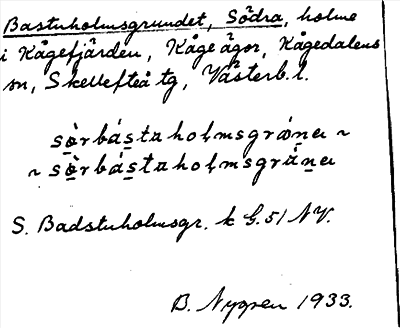 Bastuholmsgrundet, Södra, holme
i Kågefjärden, Kåge ägor, Kågedalens
sn, Skellefteå tg, Västerb. l.
sò̤rbás̲taholmsgrǿn̲a ~
~ sò̤rbás̲taholmsgrä́n̲a
S. Badstuholmsgr. k G.51 NV.
B. Nygren 1933.